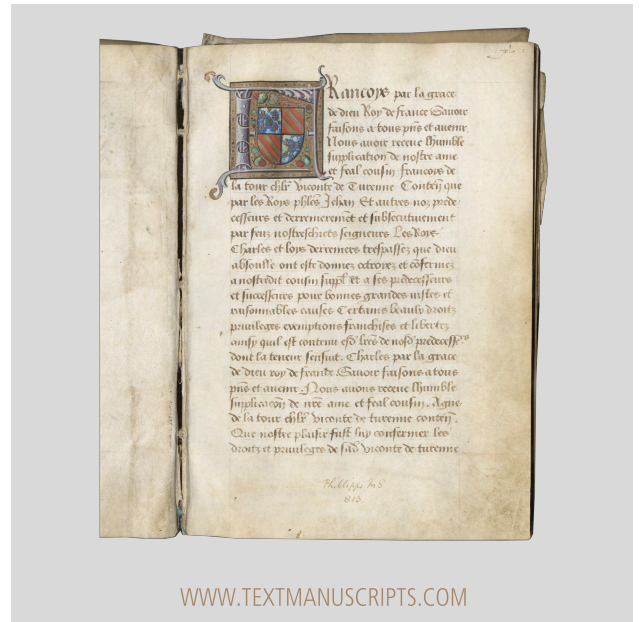 Francoys par la grace
de dieu Roy de france Savoir
faisons a tous pñs et avenir
Nous avoir receue lhumble
supplication de nostre ame
et feal cousin francoys de
la tour chlr viconte de Turenne Conteñ que
par les Roys phles Jehan Et autres noz prede
cesseurs et derrenierement et subsecutivement
par feuz nostreschiers seigneurs Les Roys
Charles et loys derreniers trespassez que dieu
absoulle ont este donnez octroyez et cōfermez
a nostredit cousin suppl et a ses predecesseurs
et successeurs pour bonnes grandes iustes et
raisonnables causes Certains beaulx droiz
privileges exemptions franchises et libertez
ainsy quil est contenu esd lrēs de nosd predecessrs
dont la teneur sensuit. Charles par la grace
de dieu roy de france. Savoir faisons a tous
pñs et avenir. Nous avons receue lhumble
supplicacoñ de nrē ame et feal cousin. Agne
de la tour chlr viconte de turenne conteñ.
Que nostre plaisir fust luy confermer les
droitz et privileges de sad viconte de turenne
Phillipps MS
813
WWW.TEXTMANUSCRIPTS.COM